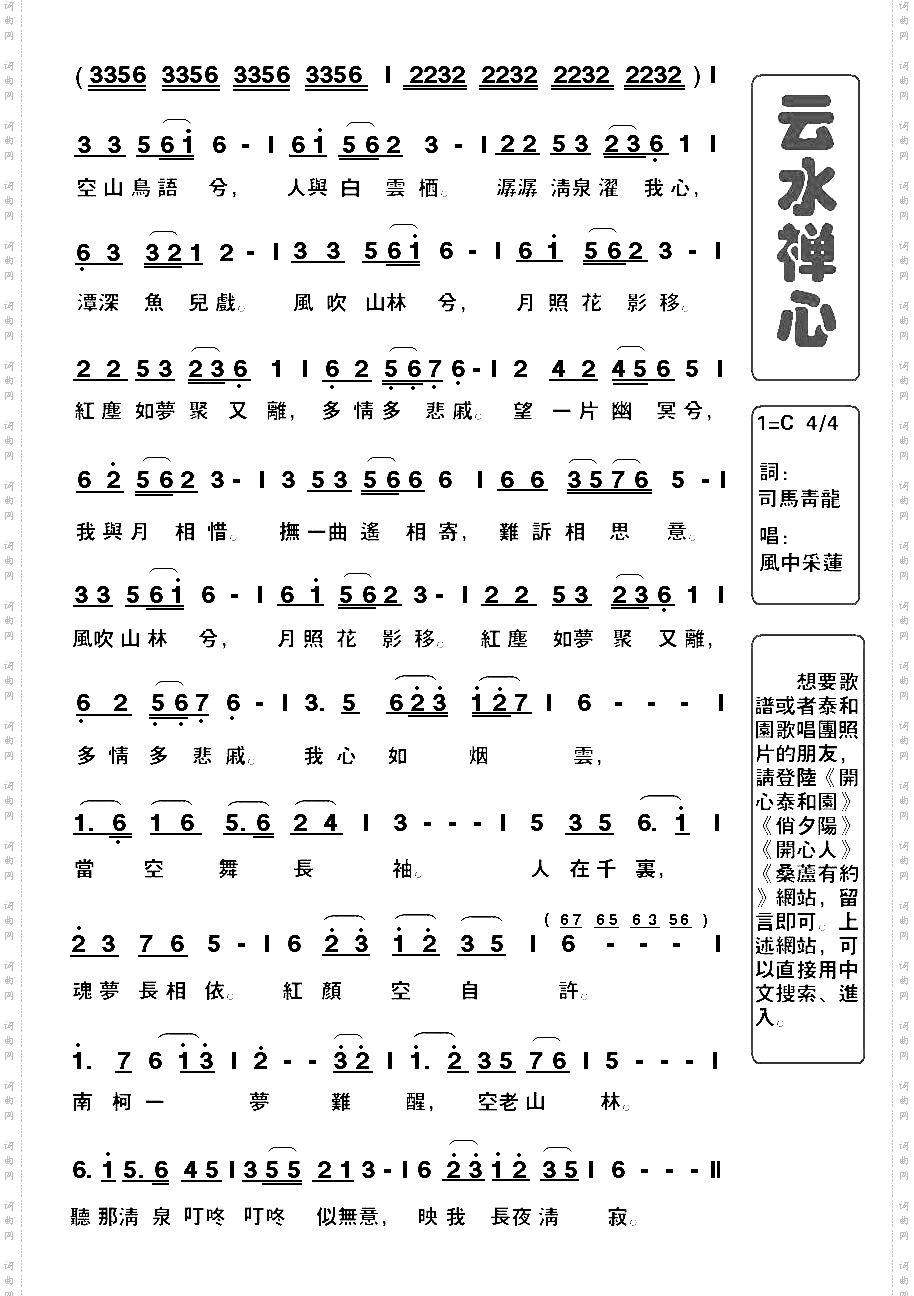 (3356 3356 3356 3356 | 2232 2232 2232 2232)|
3 3 5 6i 6 - | 6i 562 3 - | 22 53 236 1 |
空山鳥語 兮， 人與白 雲栖。 潺潺清泉濯 我心，
6 3 321 2 - | 3 3 5 6i 6 - | 6i 562 3 - |
潭深 魚 兒戲。 風吹山林 兮， 月照花 影移。
2 2 53 236 1 | 62 5676 - | 2 42 4565 5 |
紅塵如夢聚又離，多情多悲戚。望一片幽冥兮，
6 2 562 3 - | 3 53 566 6 | 66 3576 5 - |
我與月 相惜。 撫一曲遙 相寄， 難訴相思 意。
33 5 6i 6 - | 6i 562 3 - | 22 53 236 1 |
風吹山林 兮， 月照花 影移。 紅塵如夢聚 又離，
6 2 567 6 - | 3. 5 623 i27 | 6 - - - |
多情多悲戚。 我心如 烟 雲，
1. 6 16 5. 6 24 | 3 - - - | 5 35 6. i |
當 空 舞 長 袖。 人 在千裏，
( 67 65 63 56 )
2 3 76 5 - | 6 23 i2 35 | 6 - - - |
魂夢長相依。 紅顏 空 自 許。
i. 7 6 i3 | 2 - - 32 | i. 2 35 76 | 5 - - - |
南柯一 夢 難 醒， 空老山 林。
6. i 5. 6 45 | 355 213 - | 6 23 i2 35 | 6 - - - ||
聽那清泉叮咚叮咚 似無意， 映我 長夜清 寂。
云水禅心
1=C 4/4
詞：
司馬青龍
唱：
風中采蓮
想要歌
譜或者泰和
園歌唱團照
片的朋友，
請登陸《開
心泰和園》
《俏夕陽》
《開心人》
《桑蘆有約
》網站，留
言即可。上
述網站，可
以直接用中
文搜索、進
入。